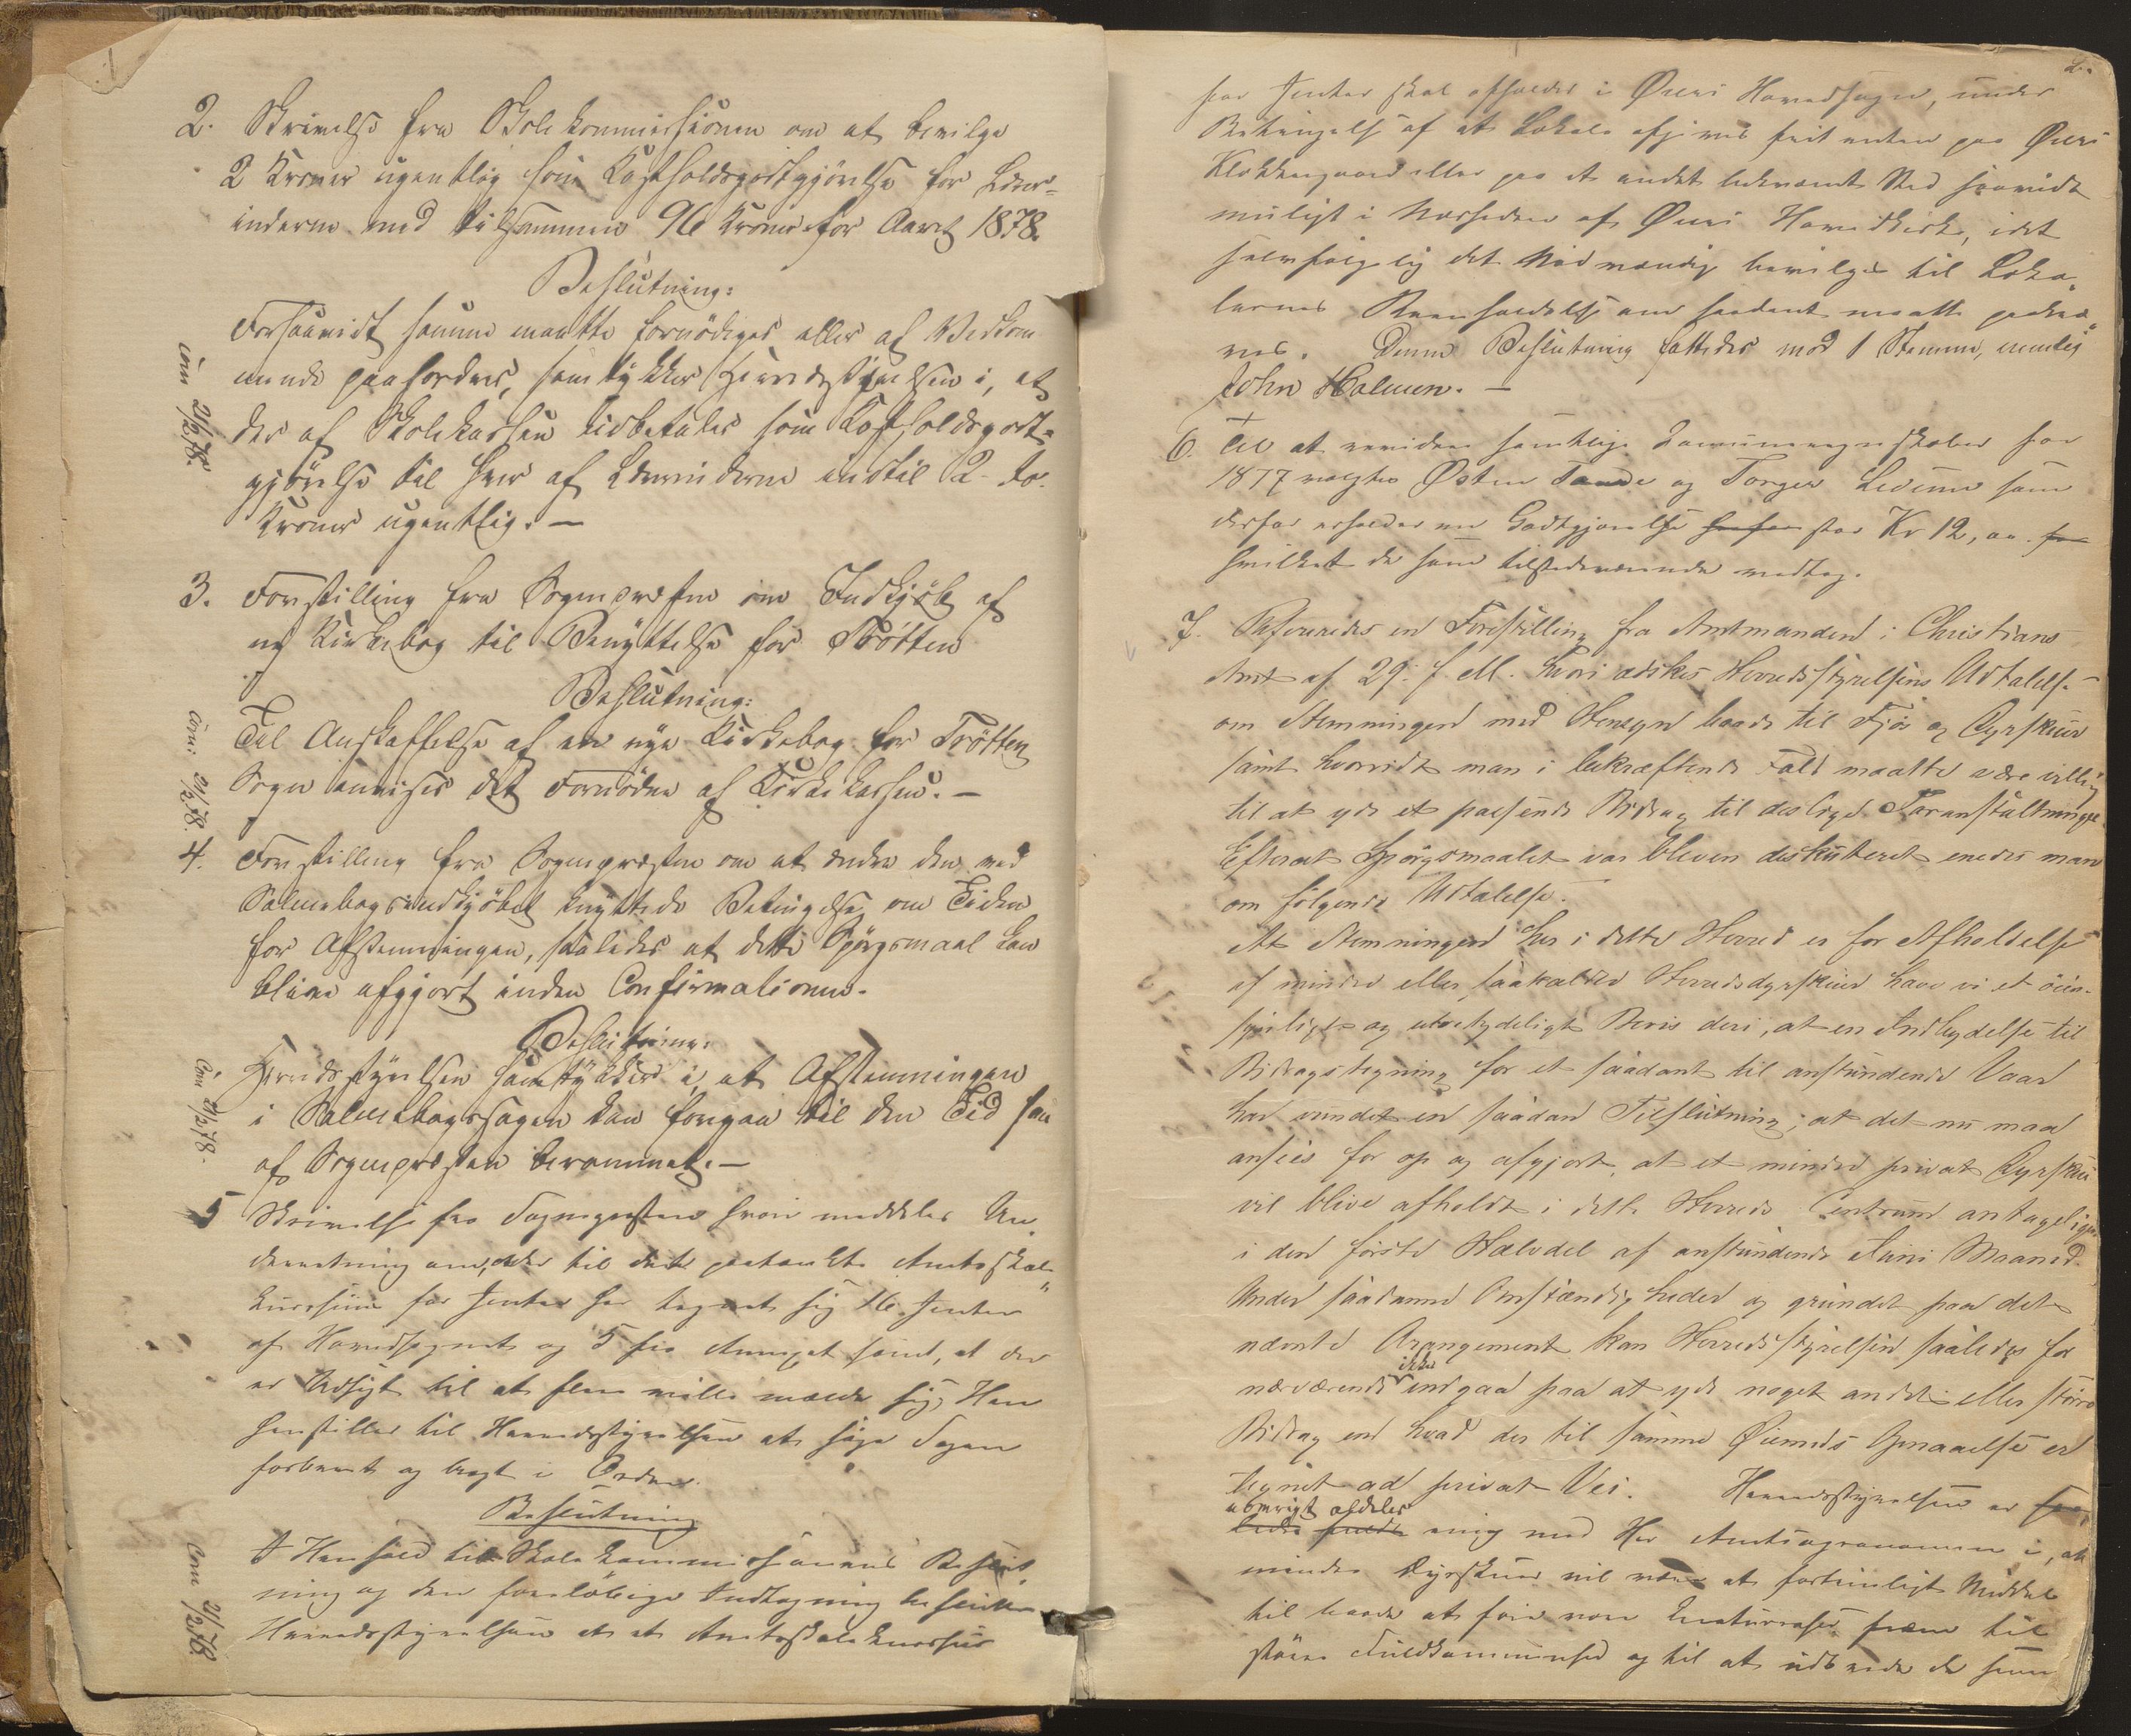 2. Skrivelse fra Skolekommissionen om at bevilge
2 Kroner ugentlig som Kostholdsgodtgjörelse for Lærer-
inderne med tilsammen 96 Kroner for Aaret 1878.
Beslutning:
Forsaavidt saamme maatte fornödiges eller af Vedkom
mende paafordres, samtykker Herredsstyrelsen i, at
der af Skolekassen udbetales som Kostholdsgodt-
gjörelse til hver af Lærerinderne indtil 2 - to
Kroner ugentlig. —
com 2/2 78.
3. Forestilling fra Sognepræsten om Indkjöb af
ny Kirkebog til Benyttelse for Trötten
Beslutning:
Til Anskaffelse af en nye Kirkebog for Trötten
Sogn anvises det Fornödne af Kirkekassen. —
com: 2/2 78.
4. Forestilling fra Sognepræsten om at ændre den ved
Salmebogsindkjöbet knyttede Betingelse om Tiden
for Afstemningen, saaledes at dette Spörgsmaal kan
blive afgjort inden Confirmationen.
Beslutning:
Herredsstyrelsen samtykker i at Afstemningen
i Salmebogssagen kan foregaa til den Tid som
af Sognepræsten berammet. —
com 2/2 78.
5 Skrivelse fra Sognepræsten hvori meddeles Un„
derretning om, at der til det paatænkte Amtsskole„
kursus for Jenter har tegnet sig 16 Jenter
af Hovedsognet og 5 fra Annexet samt, at der
er Udsigt til at flere ville melde sig, Han
henstiller til Herredsstyrelsen at söge Sagen
forberedt og bragt i Orden.
Beslutning
I Henhold til Skolekommissionens Beslut„
ning og den foreløbige Indtegning beslutter
Herredsstyrelsen at et Amtsskolekursus
com 2/2 78
2.
for Jenter skal afholdes i Øiers Hovedsogn, under
Betingelse af at Lokale afgives frit enten paa Øiers
Klokkergaard eller paa et andet bekvemt Sted saavidt
muligt i Nærheden af Øiers Hovedkirke, idet
selvfølgelig det Nødvendige bevilges til Loka„
lernes Reenholdelse om saadant maatte paakræ„
ves. Denne Beslutning fattedes mod 1 Stemme, nemlig
John Holmen. —
6. Til at revidere samtlige Kommuneregnskaber for
1877 valgtes Østen Tande og Torger Ledum som
derfor erholder en Godtgjørelse stor Kr 12, oo.
hvilket de som tilstedeværende vedtog.
7. Refereredes en Forestilling fra Amtmanden i Christians
Amt af 29. f. M. hvori æskes Herredsstyrelsens Udtalelse
om Stemningen med Hensyn baade til Fjøs og Dyrskuer
samt hvorvidt man i bekræftende Fald maatte være villig
til at yde et passende Bidrag til deslige Foranstaltninger
Efterat Spörgsmaalet var bleven diskuteret enedes man
om følgende Udtalelse.
At Stemningen her i dette Herred er for Afholdelse
af mindre eller saakaldte Herredsdyrskuer have vi et öien-
synligt og utvetydeligt Bevis deri, at en Indbydelse til
Bidragstegning for et saadant til anstundende Vaar
har vundet en saadan Tilslutning, at det nu maa
ansees for op og afgjort, at et mindre privat Dyrskue
vil blive afholdt i dette Herreds Centrum antagelig
i den förste Halvdel af anstundende Juni Maaned.
Under saadanne Omstændigheder og grundet paa det
nævnte Arangement kan Herredsstyrelsen saaledes for
nærværende ikke indgaa paa at yde noget andet eller større
Bidrag end hvad der til samme Øiemeds Opnaaelse er
tegnet ad privat Vei. Herredsstyrelsen er
uomrigt aldeles
enig med Hr Amtsagronomen i, at
mindre Dyrskuer vil være et fortrinligt Middel
til baade at före vore Kreaturraser frem til
större Fuldkommenhed og til at udbrede de samme